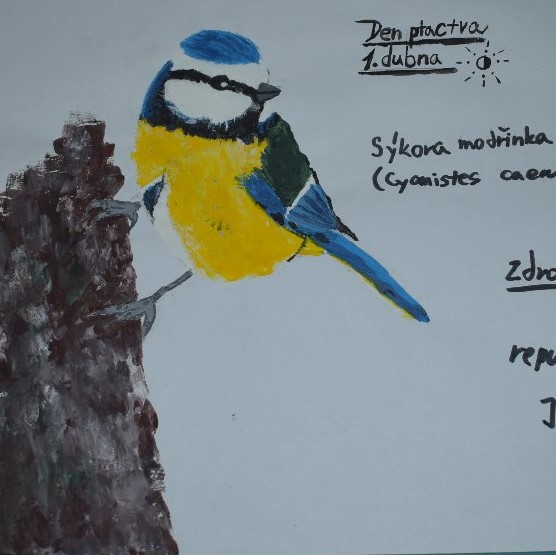 Den ptactva
1. dubna
Sýkora modřinka
(Cyanistes caeru
zdro
repu
J